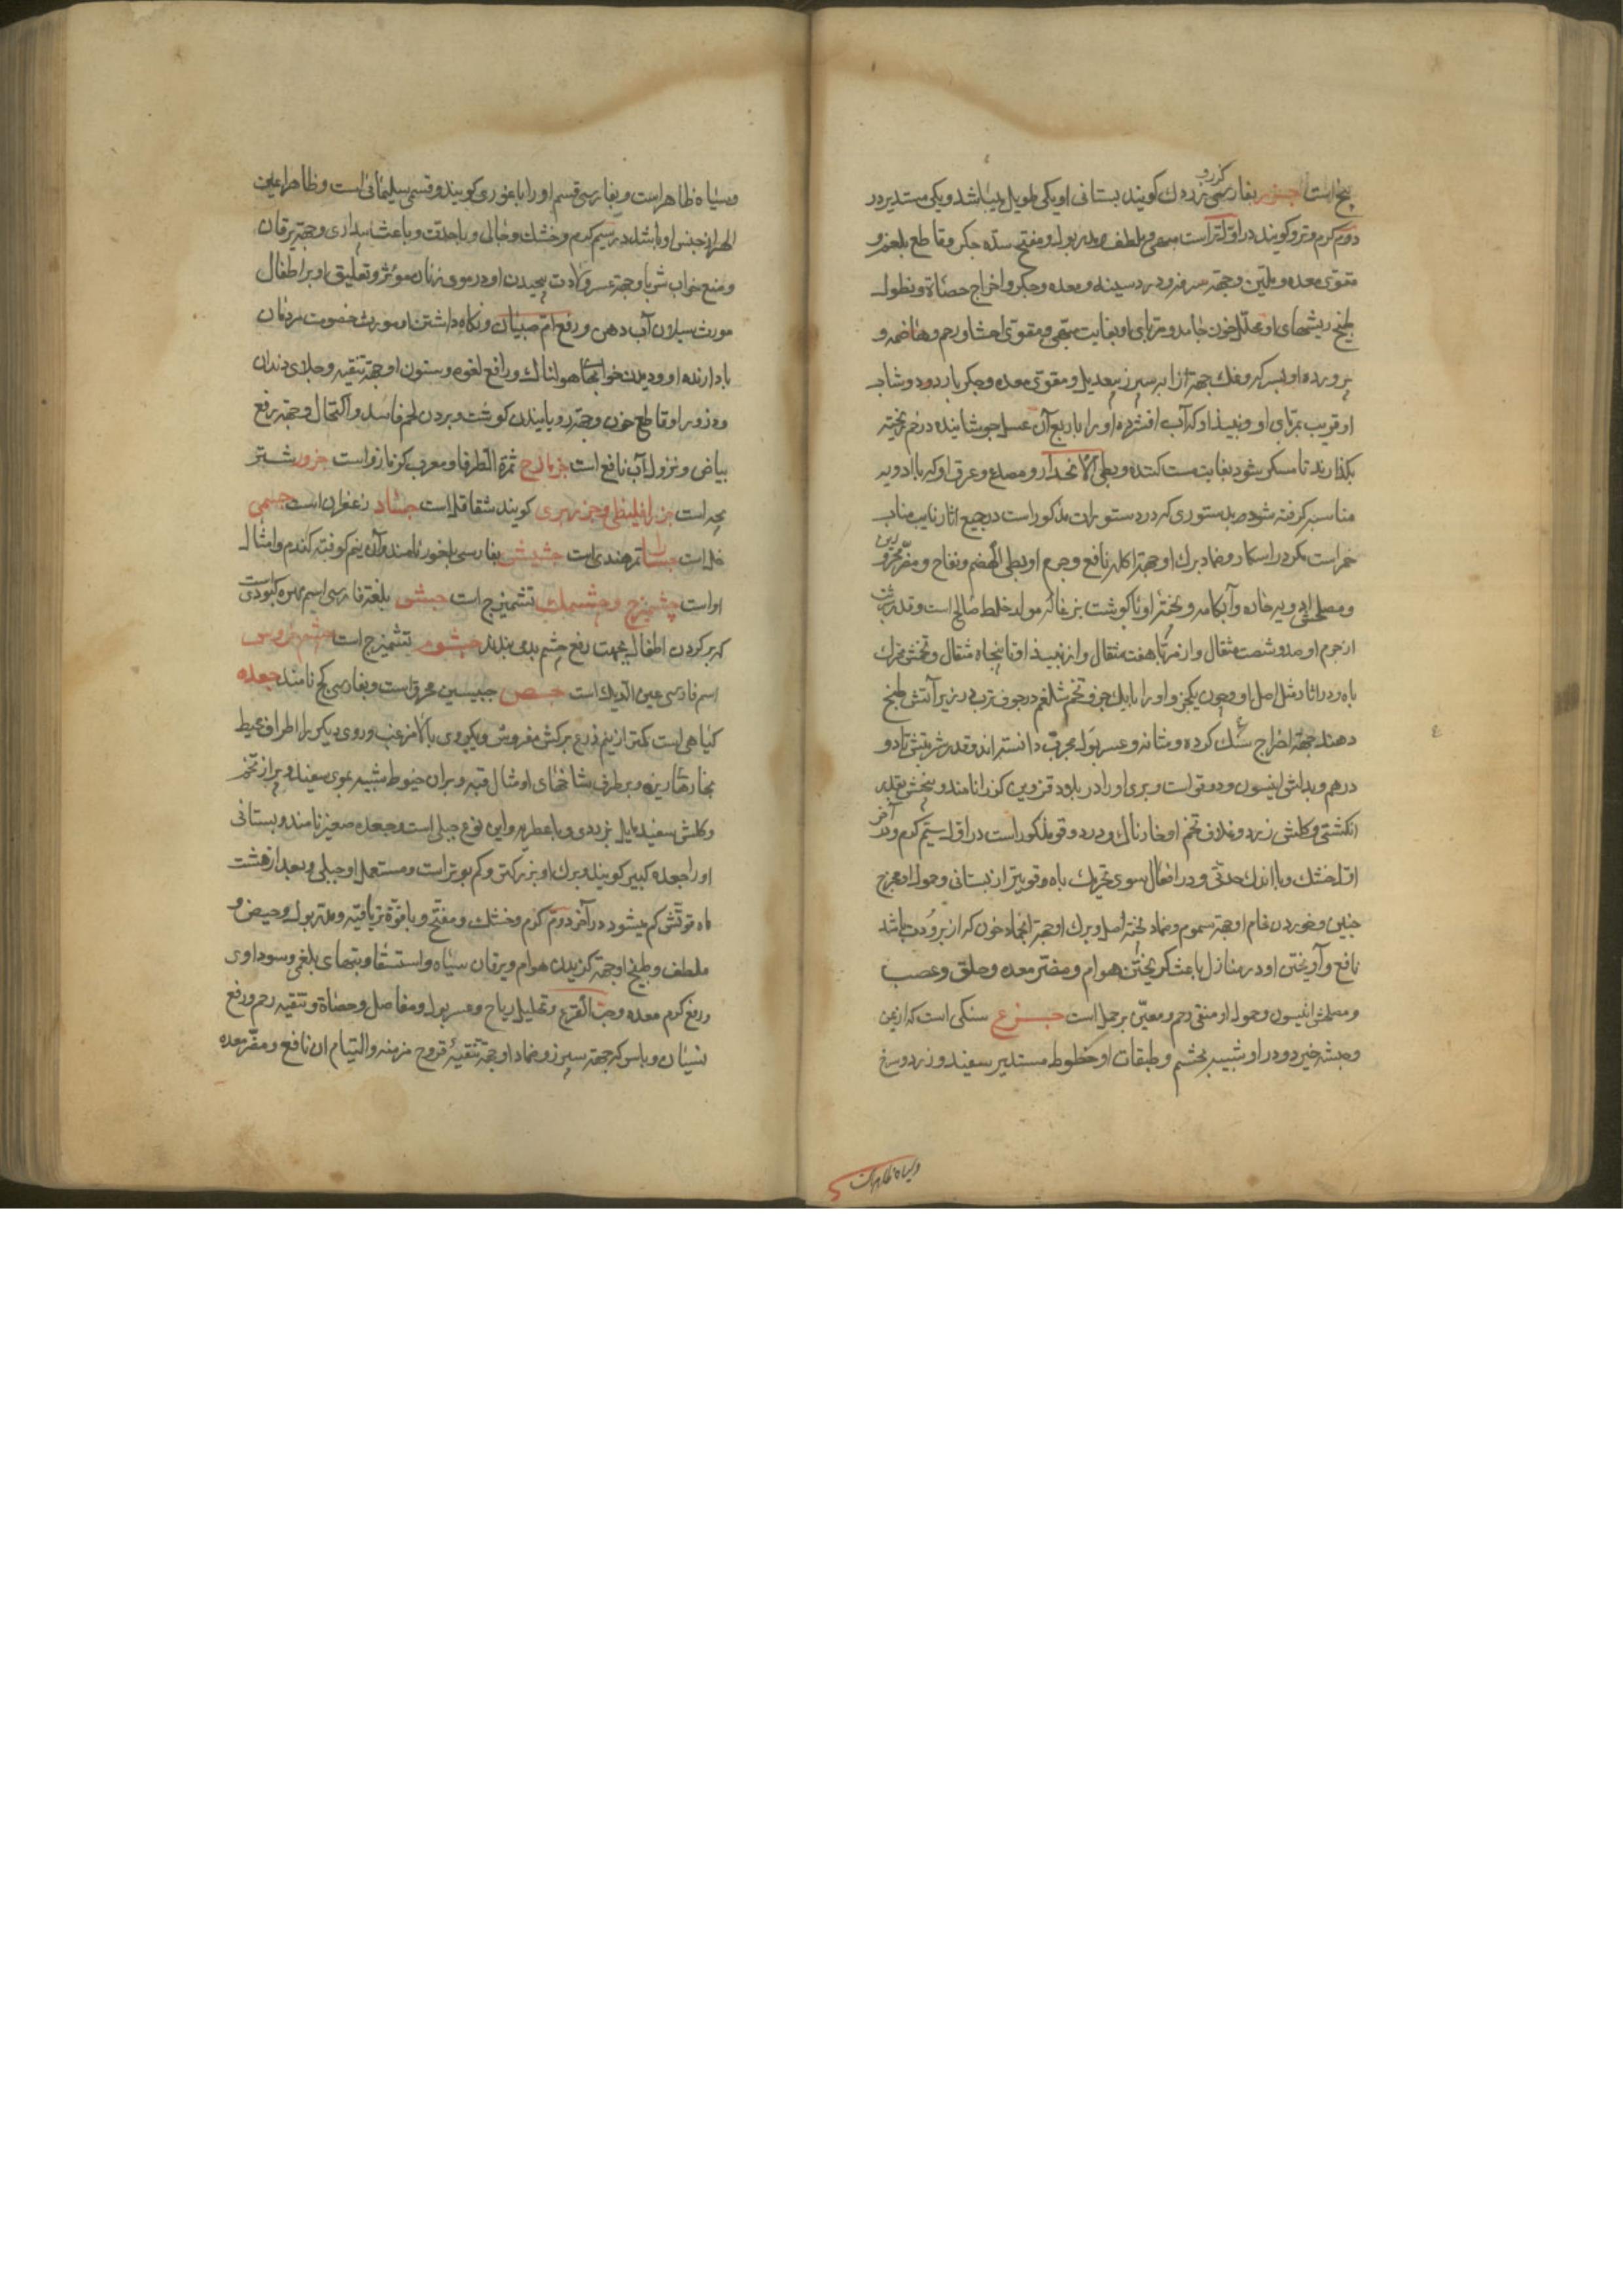 بیخ است جزر بفارسی زردک کویند بستانی او یکی طویل میباشد و یکی مستدیر در
دوم کرم و تر و کویند در اول تر است مبهی و ملطف و مدر بول و مفتح سده جکر و قاطع بلغم و
مقوی معده و ملین و جهة سرفه و درد سینه و معده و جکر و اخراج حصاة و نطول
طبخ ریشهای او محلل خون جامد و مربای او بغایت مبهی و مقوی احشا و رحم و هاضمه و
پرورده او بسرکه و نمک جهة ازاله سپرز بیعدیل و مقوی معده و جکر بارد و دوشاب
او قریب بمربای او و نبیذ او که آب افشرده او را با ربع آن عسل جوشانیده در خم ریخته
بکذارند تا مسکر شود بغایت مست کننده و بطی الانحدار و مصدع و عرق او که با ادویه
مناسبه کرفته شود بدستوری که در دستورات مذکور است در جمیع اثار نایب مناب
خمر است مکر در اسکار و ضماد برک او جهة اکله نافع و جرم او بطی الهضم و نفاخ و مضر محرورین
و مصلحش ادویه حاره و آبکامه و پخته او با کوشت بزغاله مولد خلط صالح است و قدر شربتش
از جرم او صد و شصت مثقال و از مربا هفت مثقال و از نبیذ او تا پنجاه مثقال و تخمش محرک
باه و در اثار مثل اصل او و چون یکجزو او را با یک جزو تخم شلغم در جوف ترب در زیر آتش طبخ
دهند جهة اخراج سنک کرده و مثانه و عسر بول مجرب دانسته اند و قدر شربتش تا دو
درهم و بدلش انیسون و دوقو است و بری او را در بلاد قزوین کزر نامند و بیخش بقدر
انکشتی و کلش زرد و غلاف تخم او خارناک و در دوقو مذکور است در اول سیم کرم و در آخر
اول خشک و با اندک حدتی و در افعال سوی تحریک باه قویتر از بستانی و حمول او مخرج
جنین و خوردن خام او جهة سموم و ضماد پخته اصل و برک او جهة انجماد خون که از برودت باشد
نافع و آویختن او در منازل باعث کریختن هوام و مضر معده و حلق و عصب
و مصلحش انیسون و حمول او منقی رحم و معین بر حمل است جزع سنکی است که از یمن
و حبشه خیزد و در او شبیه بچشم و طبقات او خطوط مستدیر سفید و زرد و سرخ
و سیاه ظاهر است
و سیاه ظاهر است و بفارسی قسم او را باباغوری کویند و قسمی سلیمانی است و ظاهرا عین
الهر از جنس او باشد در سیم کرم و خشک و جالی و باحدت و باعث بیداری و جهة یرقان
و منع خواب شربا و جهة عسر ولادت پیچیدن او در موی زنان موثر و تعلیق او بر اطفال
مورث سیلان آب دهن و رفع ام صبیان و نکاه داشتن او مورث خصومت مردمان
با دارنده او و دیدن خوابهای هولناک و رافع لقوه و سنون او جهة تنقیه و جلای دندان
و ذرور او قاطع خون و جهة رویانیدن کوشت و بردن لحم فاسد و اکتحال او جهة رفع
بیاض و نزول آب نافع است جزمازج ثمرة الطرفا و معرب کزمازو است جزور شتر
بچه است جزر اقلیطی و جزر بری کویند شقاقل است جساد زعفران است جسمی
خل است جسا تمر هندی است جشیش بفارسی بلغور نامند و آن نیم کوفته کندم و امثال
او است چشمیزج و چشمک تشمیزج است جشن بلغة فارسی اسم مهره کبودی است
که بر کردن اطفال بجهت رفع چشم بدی بندند جشوم تشمیزج است چشم خروس
اسم فارسی عین الدیک است جص جبسین محرق است و بفارسی کچ نامند جعده
کیاهی است کمتر از نیم ذرع برکش مفروش و یکروی بالا مزغب و روی دیکر با اطراف محیط
بخارهای ریزه و بر طرف شاخهای او مثال قبه و بر آن خیوط شبیه بموی سفید و پر از تخم
و کلش سفید مایل بزردی و با عطریه و این نوع جبلی است و جعده صغیر نامند و بستانی
او را جعده کبیر کویند و برک او بزرکتر و کم بوتر است و مستعمل او جبلی و بعد از هشت
ماه قوتش کم میشود در آخر دوم کرم و خشک و مفتح و با قوة تریاقیه و مدر بول و حیض و
ملطف و طبیخ او جهة کزیدن هوام و یرقان سیاه و استسقا و تبهای بلغمی و سوداوی
و رفع کرم معده و حب القرع و تحلیل ریاح و عسر بول و مفاصل و حصاة و تنقیه رحم و رفع
نسیان و با سرکه جهة سپرز و ضماد او جهة تنقیه قروح مزمنه و التیام آن نافع و مضر معده